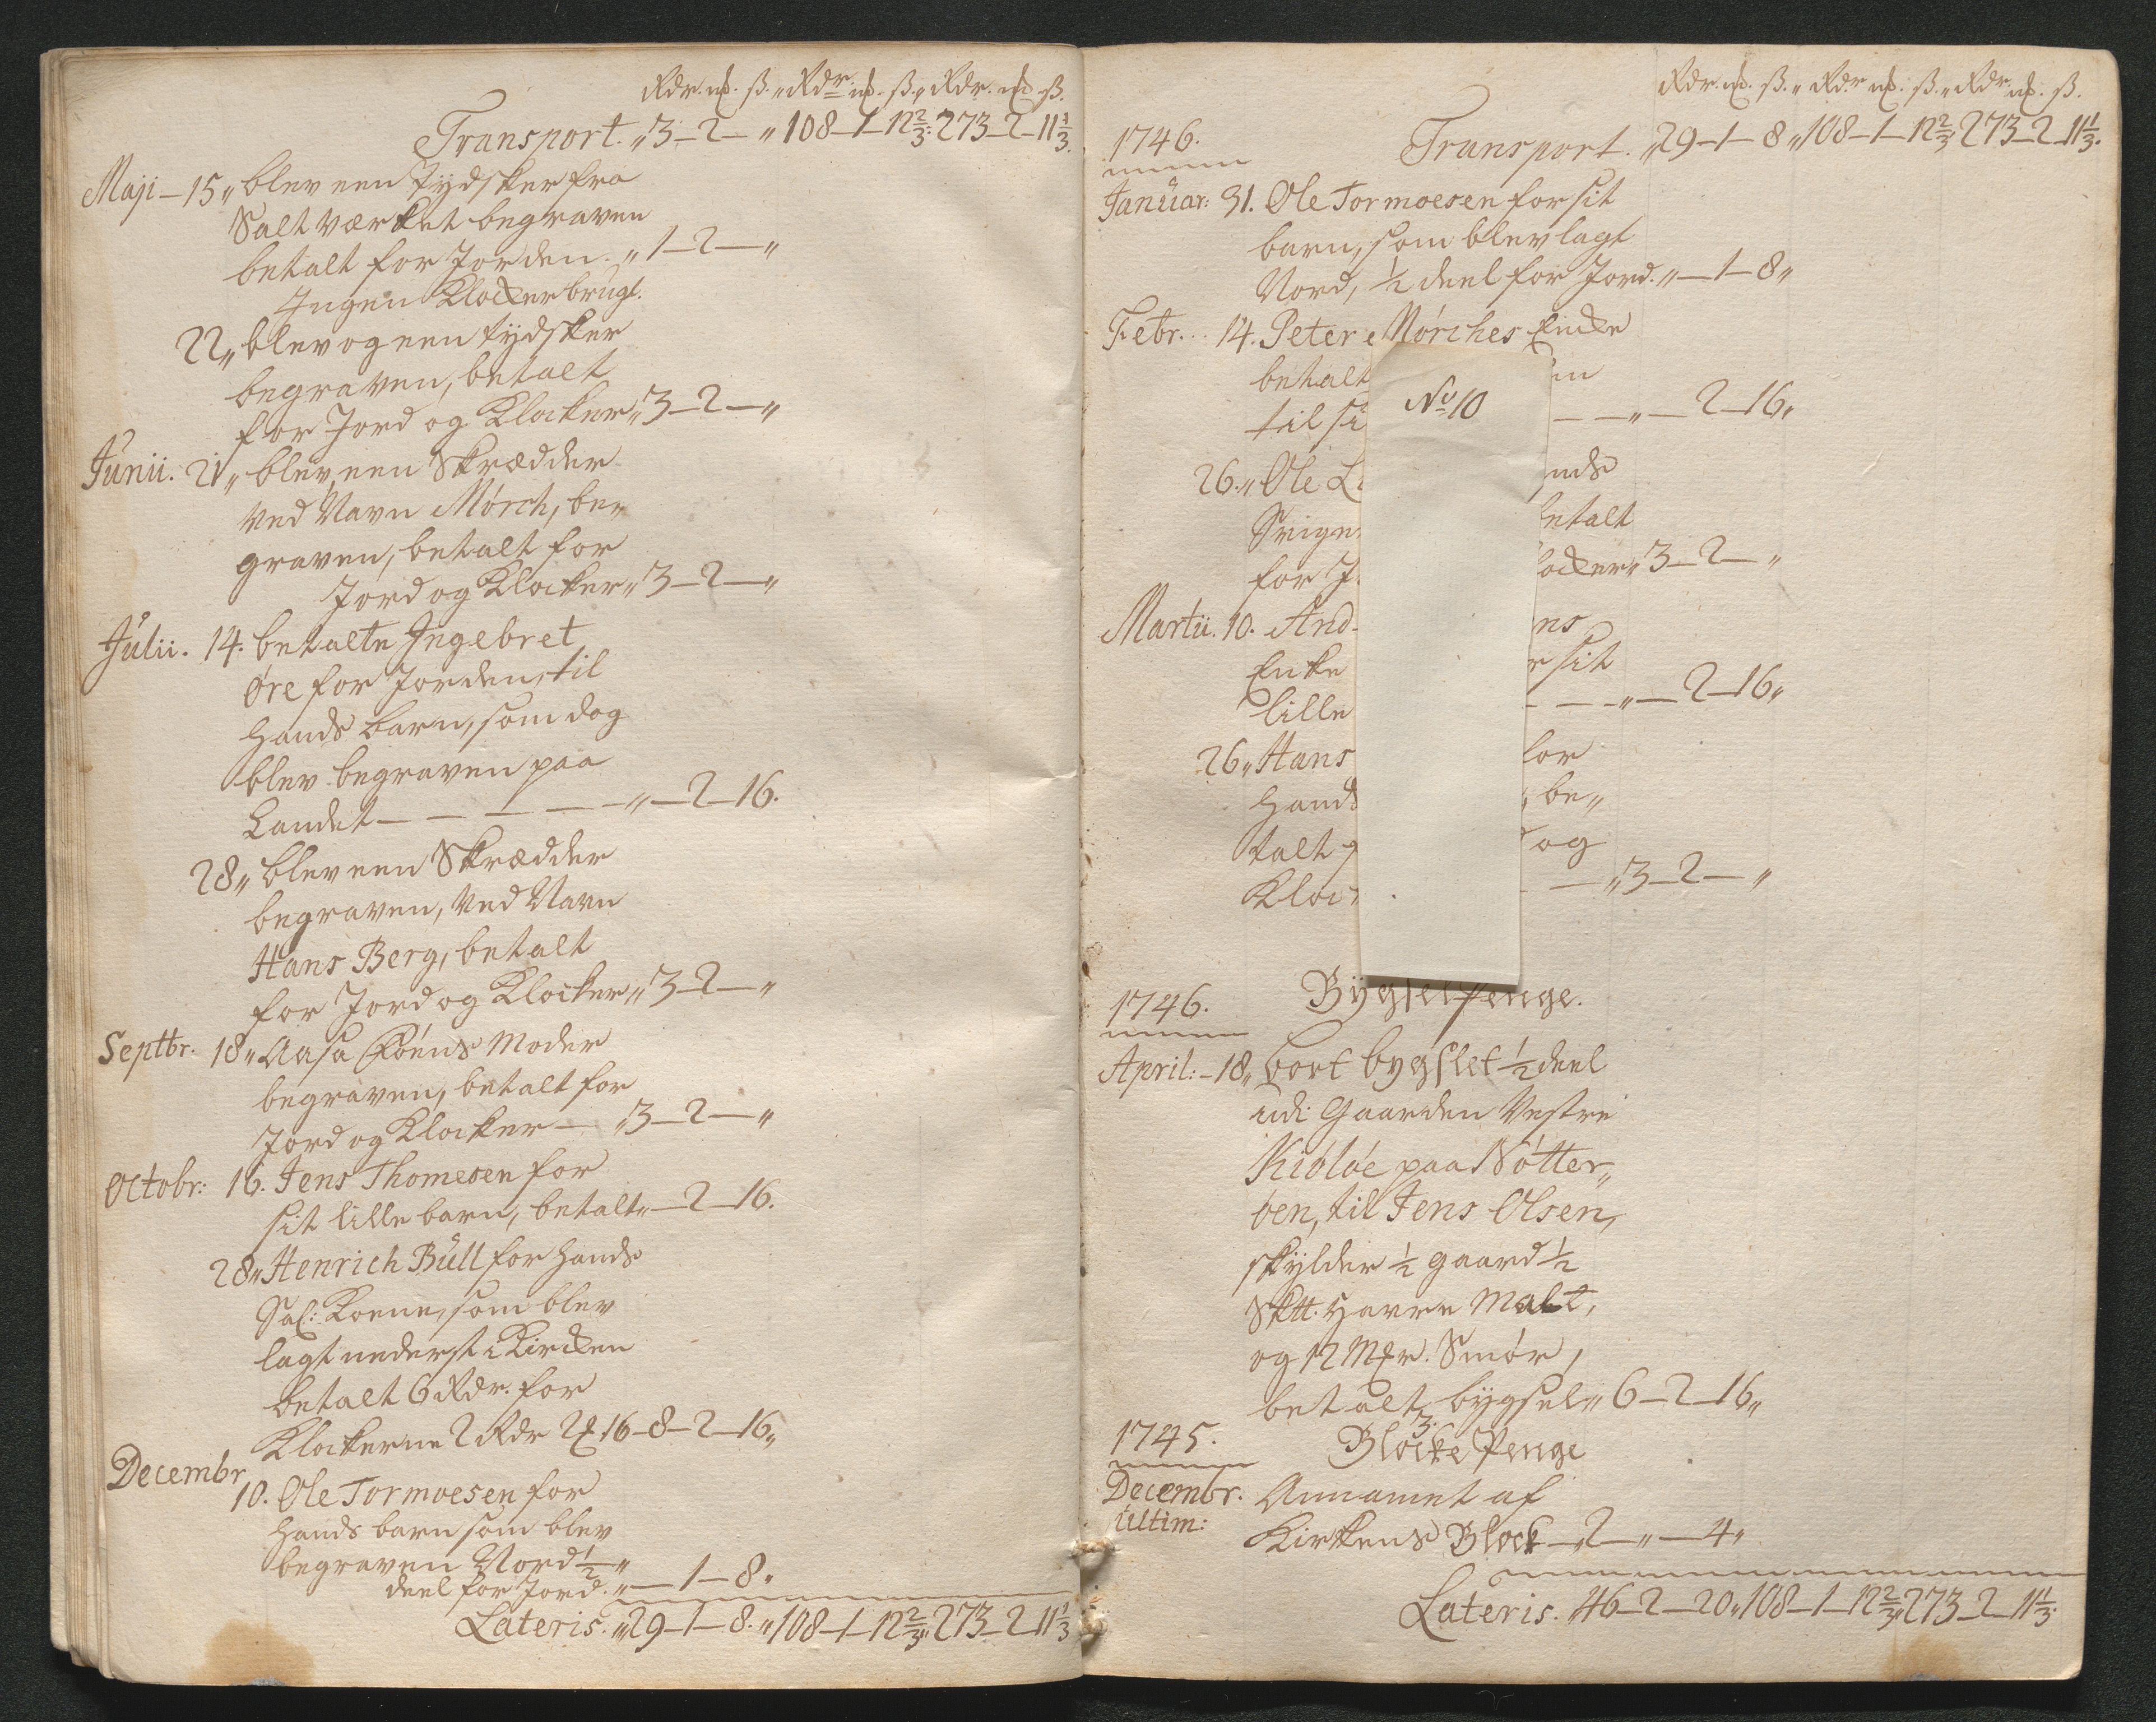 Rdr. mk. ß. „ Rdr. mk. ß. „ Rdr. mk. ß.
Transport. „ 3–2– „ 108–1–12 2/3. 273–2–11 1/3.
Maji – 15 „ blev een Tydsker fra
Saltværket begraven
betalt for Jorden. „ 1–2– „
Ingen Klocker brugt.
22 „ blev og een tydsker
begraven, betalt
for Jord og Klocker „ 3–2– „
Junii. 21 „ blev een Skrædder
ved Navn Mörch, be„
graven, betalt for
Jord og Klocker „ 3–2– „
Julii. 14. betalte Ingebret
Öre for Jorden, til
hands barn, som dog
blev begraven paa
Landet – – – – – „ – 2–16.
28 „ blev een Skrædder
begraven, ved Navn
Hans Berg, betalt
for Jord og Klocker „ 3–2– „
Septbr. 18 „ Aasa Moder
begraven, betalt for
Jord og Klocker – „ 3–2– „
Octobr: 16. Jens Thomesen for
sit lille barn, betalt „ – 2–16.
28 „ Henrich Büll for hands
Sal: Koene, som blev
lagt nederst i Kircken
betalt 6 Rdr. for
Klockerne 2 Rdr 2 mk 16 – 8–2–16 „
Decembr
10. Ole Tormoesen for
hands barn som blev
begraven Nord 1/2 „
deel for Jord. „ – 1–8 „
Lateris. „ 29–1–8. „ 108–1–12 2/3 „ 273–2–11 1/3
Rdr. mk. ß. „ Rdr mk. ß. „ Rdr. mk. ß.
1746. Transport. „ 29–1–8 „ 108–1–12 2/3 „ 273–2–11 1/3.
Januar: 31. Ole Tormoesen for sit
barn, som blev lagt
Nord, 1/2 deel for Jord. „ – 1–8 „
Febr. 14. Peter Mörches Encke
betalt
til si – – „ – 2–16 „
26. „ Ole L ends
Sviger betalt
for J ocker „ 3–2– „
Martii. 10. And ns
Encke r sit
lille – – – „ – 2–16 „
26 „ Hans for
hands , be„
talt og
Kloc – – „ 3–2– „
No 10
1746. Bygselpenge.
April: – 18 „ bort bygslet 1/2 deel
udi Gaarden Vestre
Kiölöe paa Nötter„
öen, til Jens Olsen,
skylder 1/2 gaard 1/2
Sktt. Havre Malt,
og 12 Mkr. Smör,
betalt bygsel „ 6–2–16 „
3.
1745. Blocke Penge
Decembr. Annamet af
Ultim: Kirkens Block – 2– „ – 4 „
Lateris. 46–2–20 „ 108–1–12 2/3 „ 273–2–11 1/3.